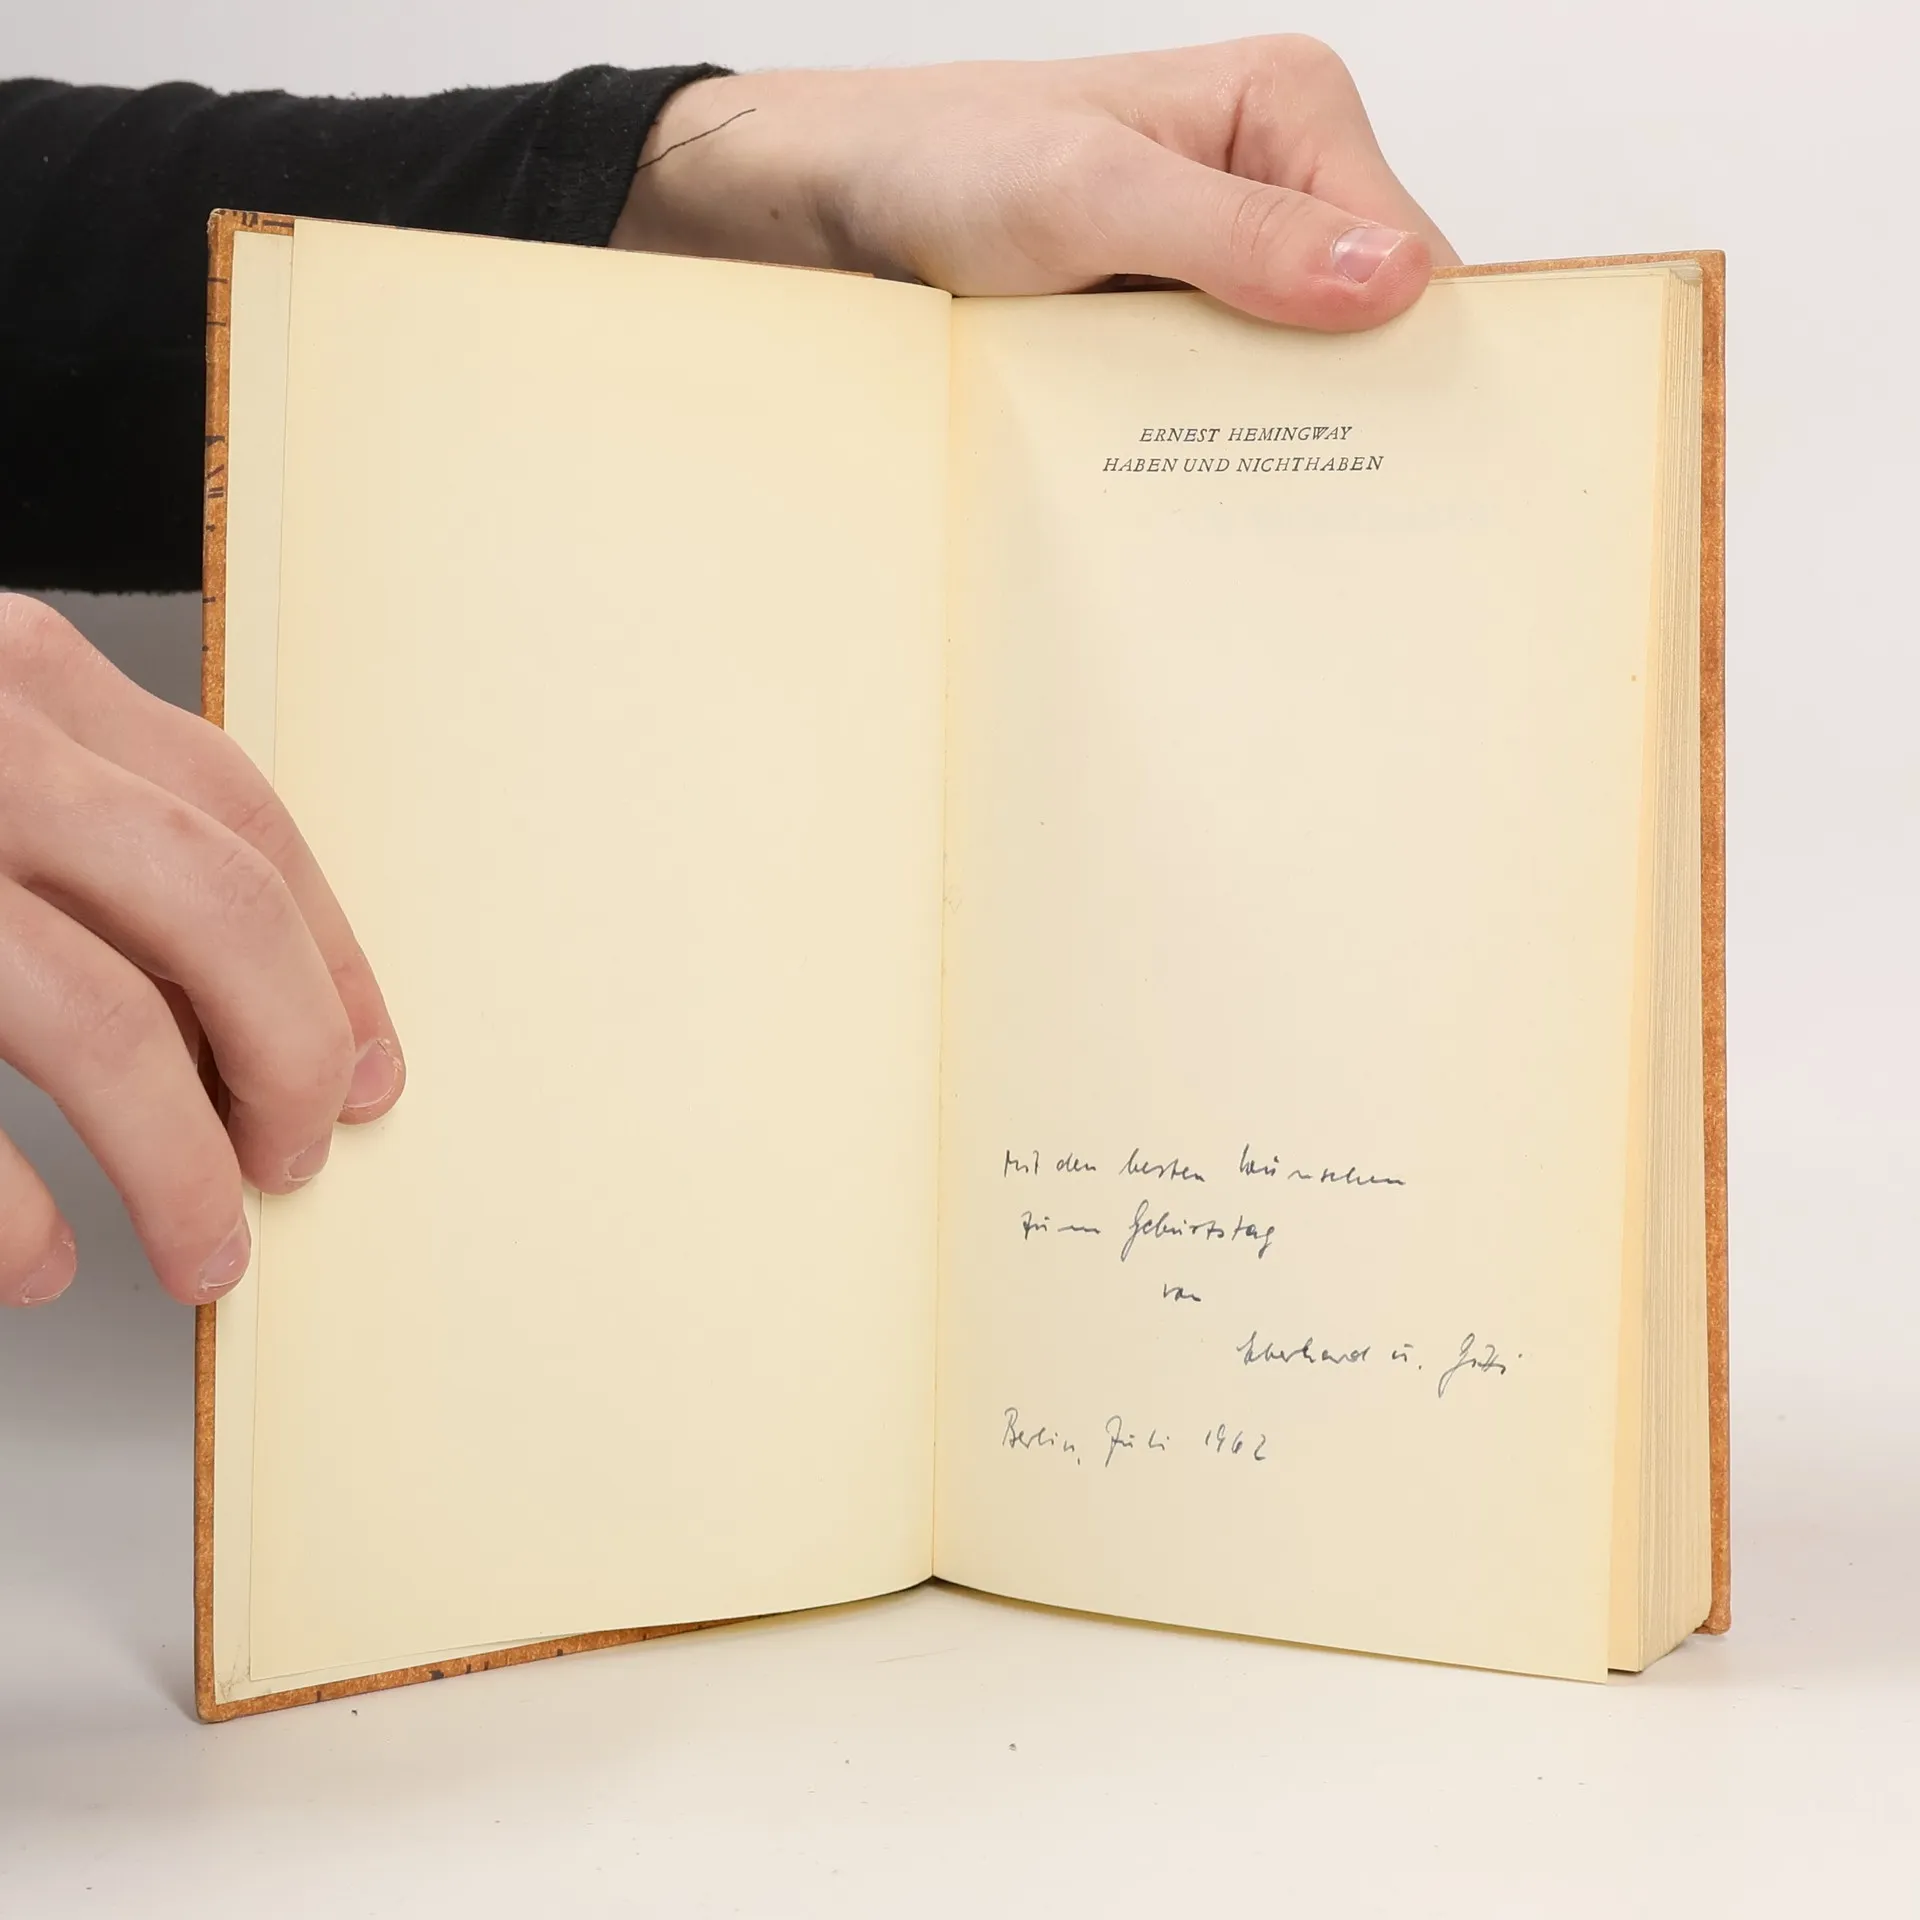 ERNEST HEMINGWAY
HABEN UND NICHTHABEN
Mit den besten Wünschen
zum Geburtstag
von
Eberhard u. Gitti
Berlin, Juli 1962